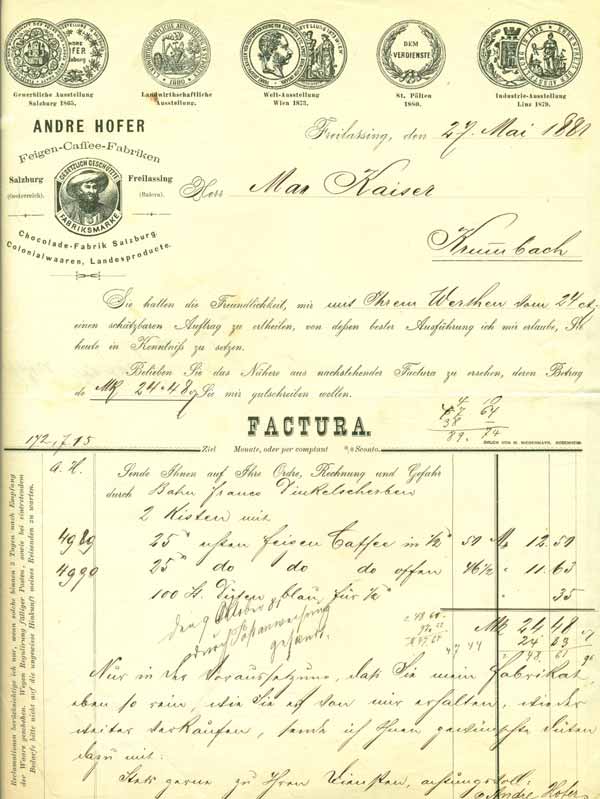 DEM VERDIENSTE
1880
Gewerbliche Ausstellung
Salzburg 1865.
Landwirthschaftliche
Ausstellung.
Welt-Ausstellung
Wien 1873.
St. Pölten
1880.
Industrie-Ausstellung
Linz 1879.
ANDRE HOFER
Feigen-Caffee-Fabriken
Salzburg
(Oesterreich).
Freilassing
(Baiern).
GESETZLICH GESCHÜTZTE
FABRIKSMARKE
Chocolade-Fabrik Salzburg.
Colonialwaaren, Landesproducte.
Freilassing, den 27. Mai 1881
Herr Max Kaiser
Krumbach
Sie hatten die Freundlichkeit, mir mit Ihrem Werthen vom 24 ct.
einen schätzbaren Auftrag zu ertheilen, von deßen bester Ausführung ich mir erlaube, Sie
heute in Kenntniß zu setzen.
Belieben Sie das Nähere aus nachstehender Factura zu ersehen, deren Betrag
de Mk 24.48 Sie mir gutschreiben wollen.
FACTURA.
DRUCK VON M. NIEDERMAYR, ROSENHEIM.
Ziel Monate, oder per comptant % Sconto.
A. H. Sende Ihnen auf Ihre Ordre, Rechnung und Gefahr
durch Bahn franco Dinkelscherben
2 Kisten mit
4989 25 Feigen Caffee in ½ 50 M 12.50
4990 25 do do do offen 46½ " 11.63
100 St. Düten blau für ½ " 35
Mk 24 48
den 9 Oktober 81
durch Postanweisung
gesandt.
Nur in der Voraussetzung, daß Sie mein Fabrikat,
eben so rein, wie Sie es von mir erhalten, wieder
weiter verkaufen, sende ich Ihnen gewünschte Düten
dazu mit.
Stets gerne zu Ihren Diensten, achtungsvoll:
Andre Hofer
Reclamationen berücksichtige ich nur, wenn solche binnen 3 Tagen nach Empfang
der Waare geschehen. Wegen Regulirung fälliger Posten, sowie bei eintretendem
Bedarfe bitte nicht auf die ungewisse Hinkunft meines Reisenden zu warten.